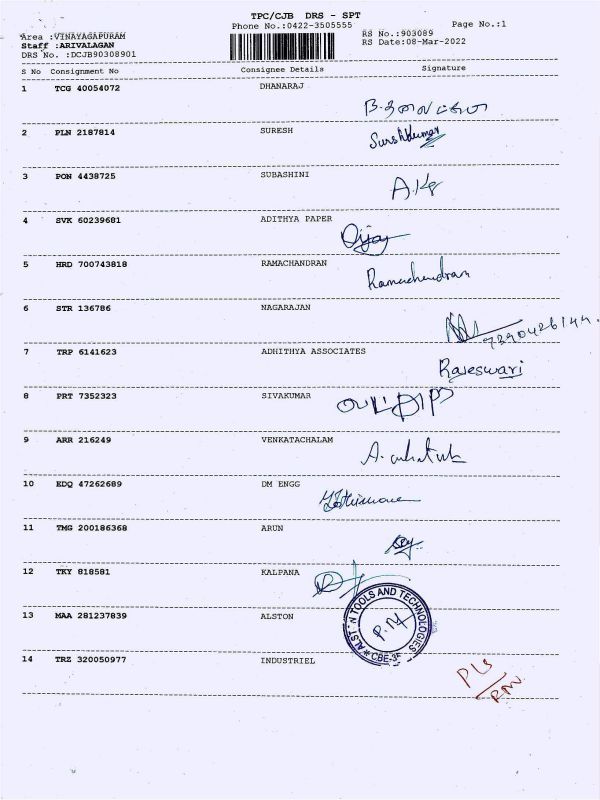 TPC/CJB DRS - SPT
Phone No.:0422-3505555
Page No.:1
Area :VINAYAGAPURAM
Staff :ARIVALAGAN
DRS No. :DCJB90308901
RS No.:903089
RS Date:08-Mar-2022
S No Consignment No Consignee Details Signature
1 TCG 40054072 DHANARAJ
2 PLN 2187814 SURESH
Sureshkumar
3 PON 4438725 SUBASHINI
4 SVK 60239681 ADITHYA PAPER
Vijay
5 HRD 700743818 RAMACHANDRAN
Ramachandran
6 STR 136786 NAGARAJAN
7 TRP 6141623 ADHITHYA ASSOCIATES
Rajeswari
8 PRT 7352323 SIVAKUMAR
9 ARR 216249 VENKATACHALAM
10 EDQ 47262689 DM ENGG
11 TMG 200186368 ARUN
12 TKY 818581 KALPANA
13 MAA 281237839 ALSTON
ALSTON TOOLS AND TECHNOLOGIES
CBE-35
14 TRZ 320050977 INDUSTRIEL